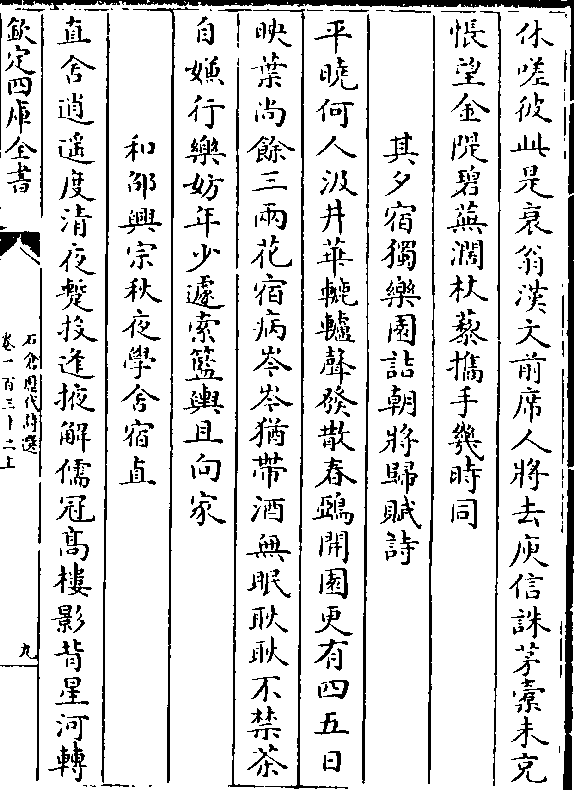 休嗟彼此是衰翁漢文前席人將去庾信誅茅槖未充
悵望金隄碧蕪濶杖藜攜手幾時同
其夕宿獨樂園詰朝將歸賦詩
平曉何人汲井華轆轤聲發散春鵶開園更有四五日
映葉尚餘三兩花宿病岑岑猶帶酒無眠耿耿不禁茶
自嫌行樂妨年少遽索籃輿且向家
和邵興宗秋夜學舍宿直
直舍逍遥度清夜蹔投逢掖解儒冠髙樓影背星河轉
欽定四庫全書
石倉歴代詩選
卷一百三十二上
九